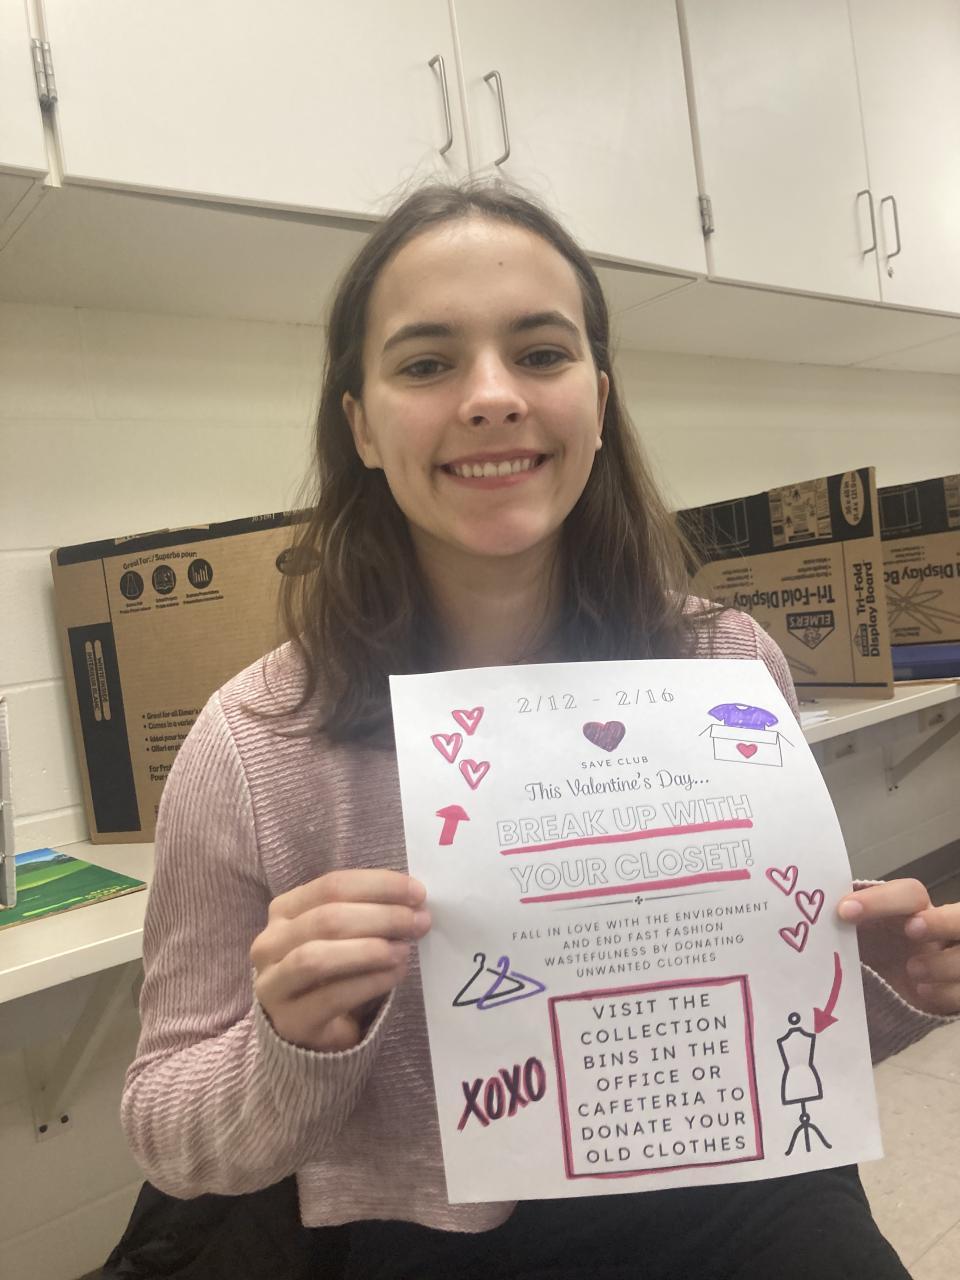 2/12 - 2/16
SAVE CLUB
This Valentine's Day...
BREAK UP WITH
YOUR CLOSET!
FALL IN LOVE WITH THE ENVIRONMENT
AND END FAST FASHION
WASTEFULNESS BY DONATING
UNWANTED CLOTHES
VISIT THE
COLLECTION
BINS IN THE
OFFICE OR
CAFETERIA TO
DONATE YOUR
OLD CLOTHES
XOXO
Great For: / Superbe pour:
Tri-Fold Display
ELMER'S
Tri-Fold
Display Board